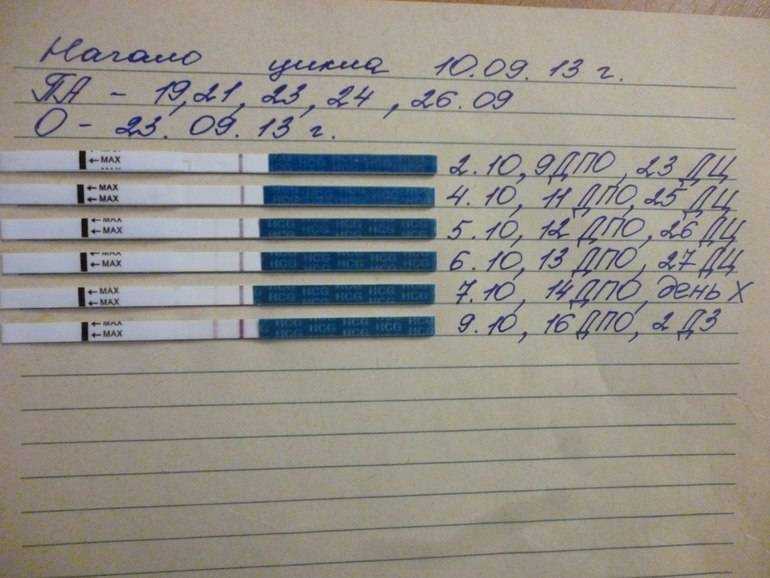 Начало цикла 10.09.13 г.
ПА - 19, 21, 23, 24, 26.09
О - 23.09.13 г.
←MAX HCG HCG HCG 2.10, 9 ДПО, 23 ДЦ
←MAX ←MAX 4.10, 11 ДПО, 25 ДЦ
←MAX HCG HCG HCG HCG HCG 5.10, 12 ДПО, 26 ДЦ
←MAX HCG HCG HCG HCG HCG 6.10, 13 ДПО, 27 ДЦ
←MAX ←MAX HCG HCG HCG HCG HCG 7.10, 14 ДПО, день X
←MAX ←MAX HCG HCG HCG HCG HCG 9.10, 16 ДПО, 2 ДЗ